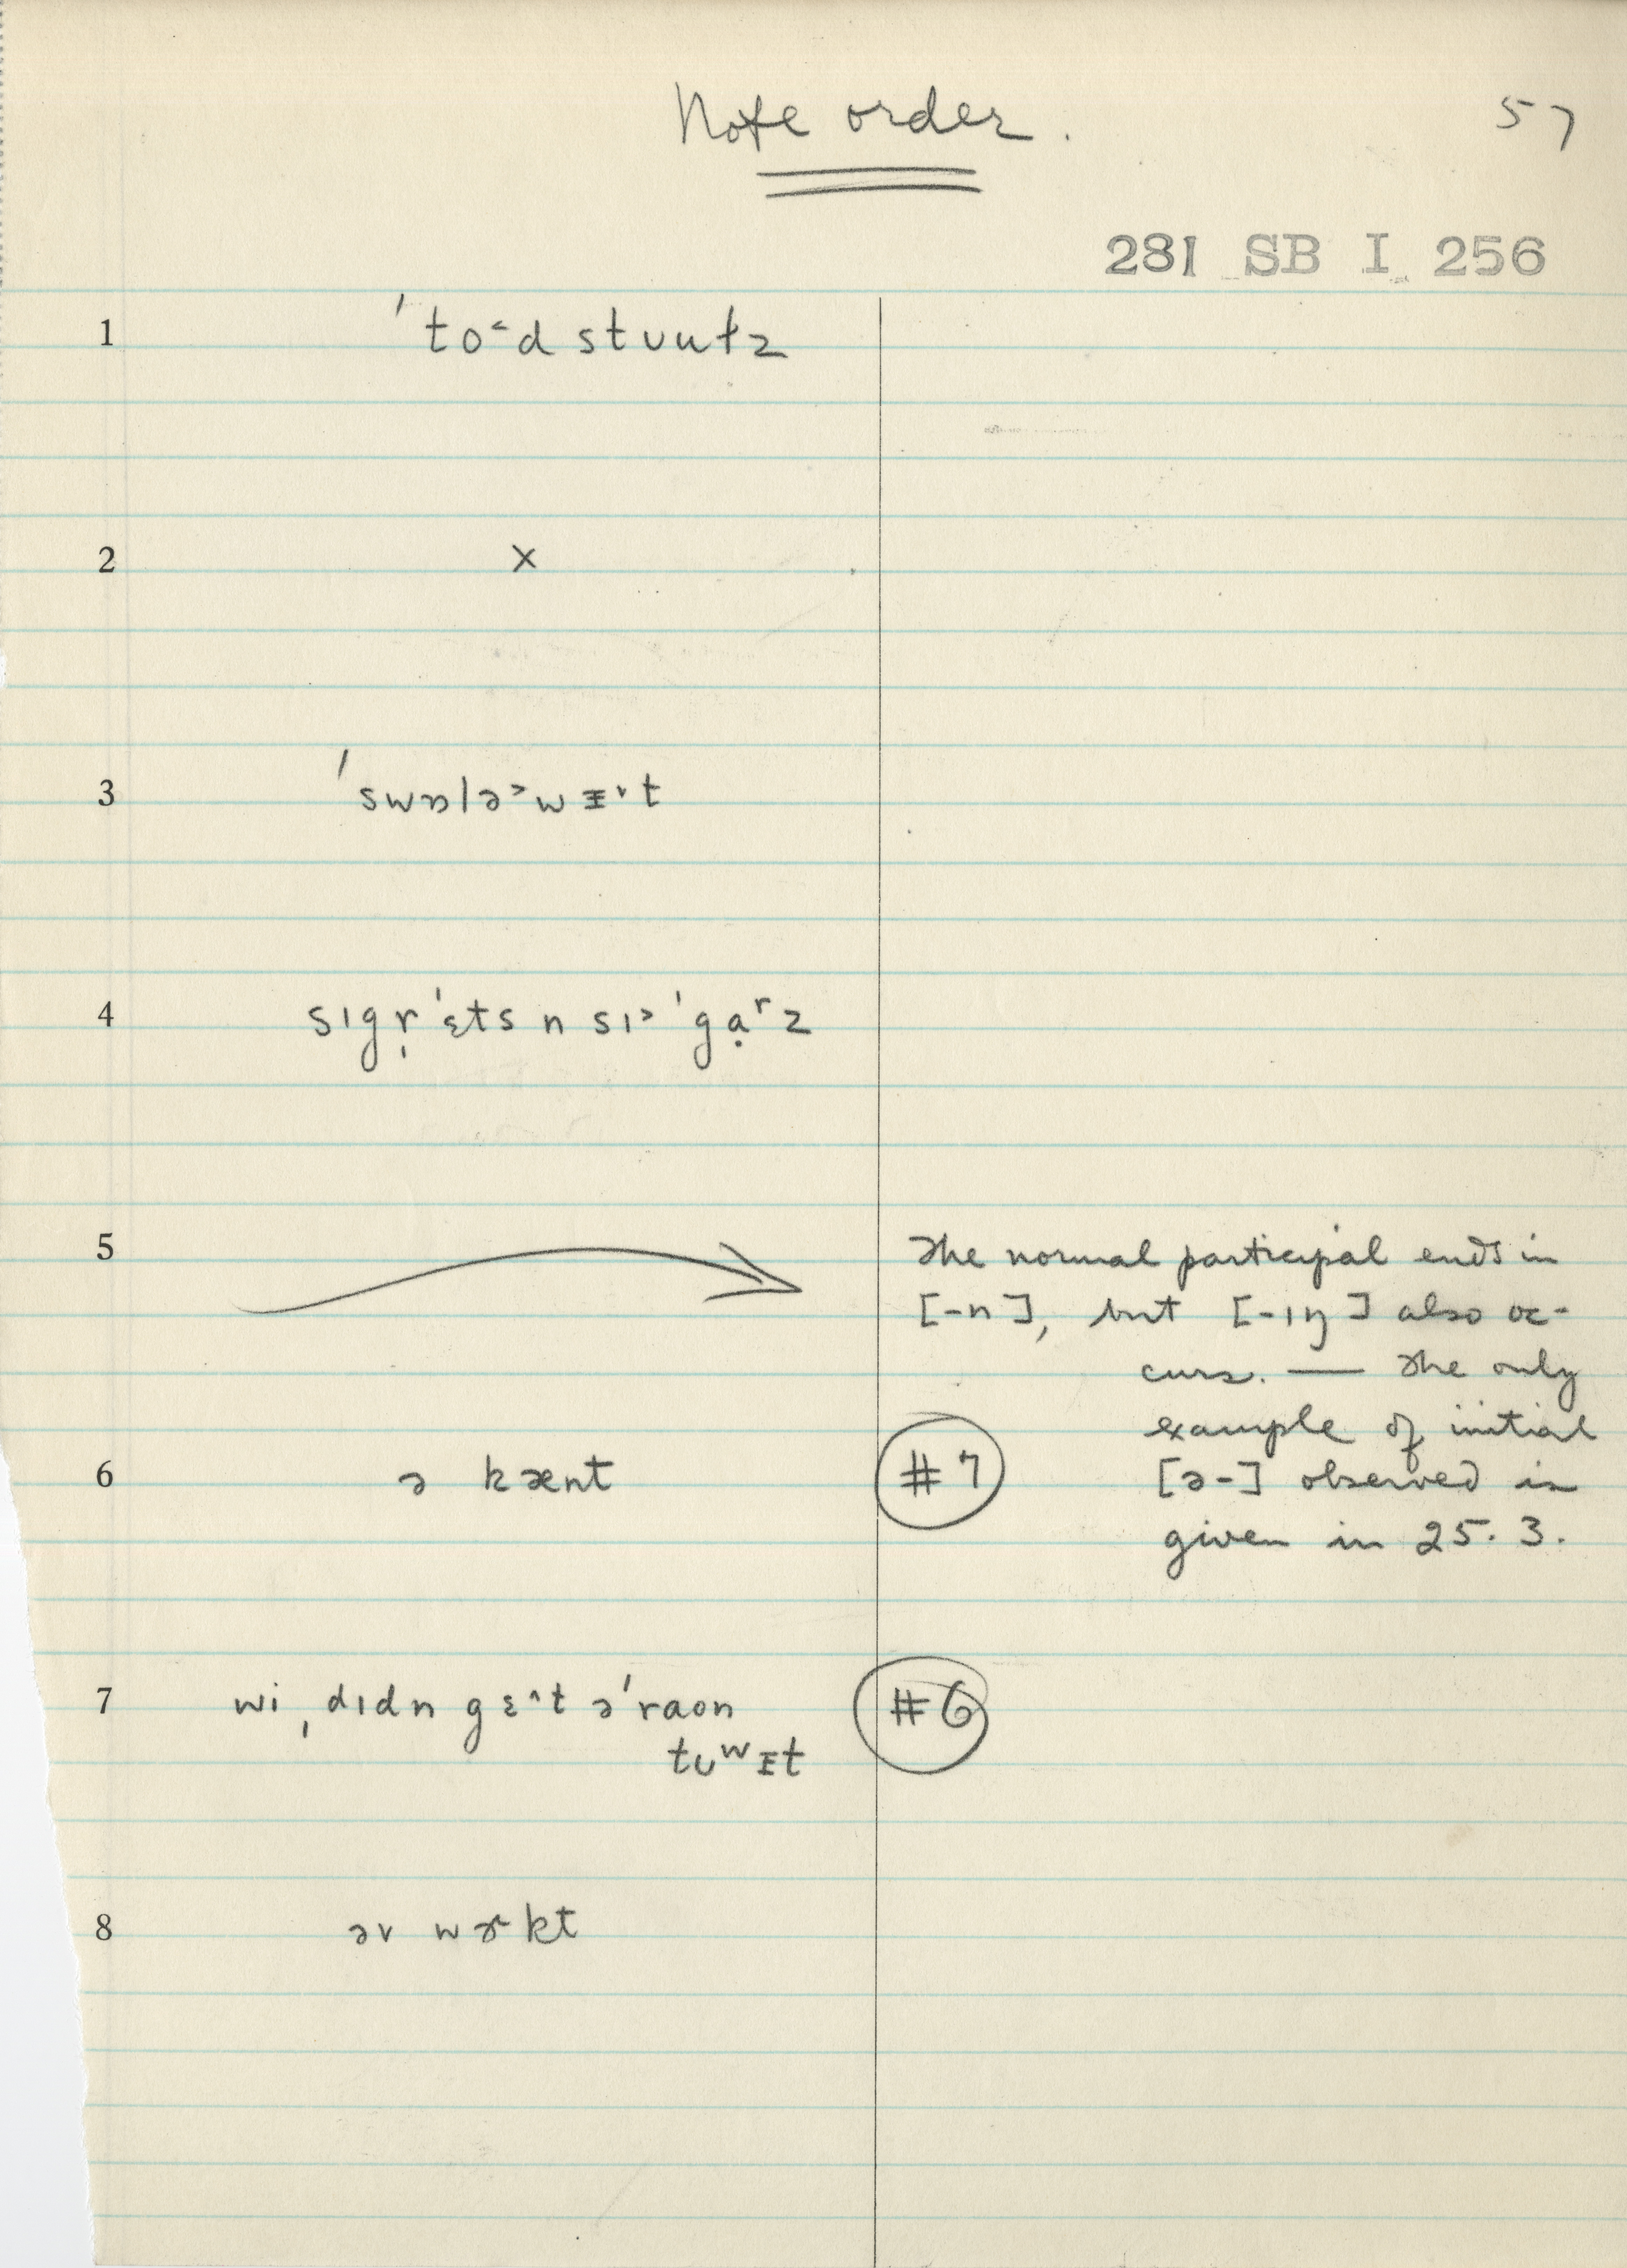 Note order.
57
281 SB I 256
1 ˈto˂d stʊutz
2 ×
3 ˈswɒlə˃wᵻ˅t
4 sɪgr̩ˈɛts n sɪ˃ˈgạʳz
5 The normal participal ends in
[-n], but [-ɪŋ] also oc-
curs. — The only
example of initial
6 ə kænt #7 [ə-] observed is
given in 25.3.
7 wi ˌdɪdn gɛ˄t əˈraʊn #6
tʊʷᵻt
8 əv wɚkt